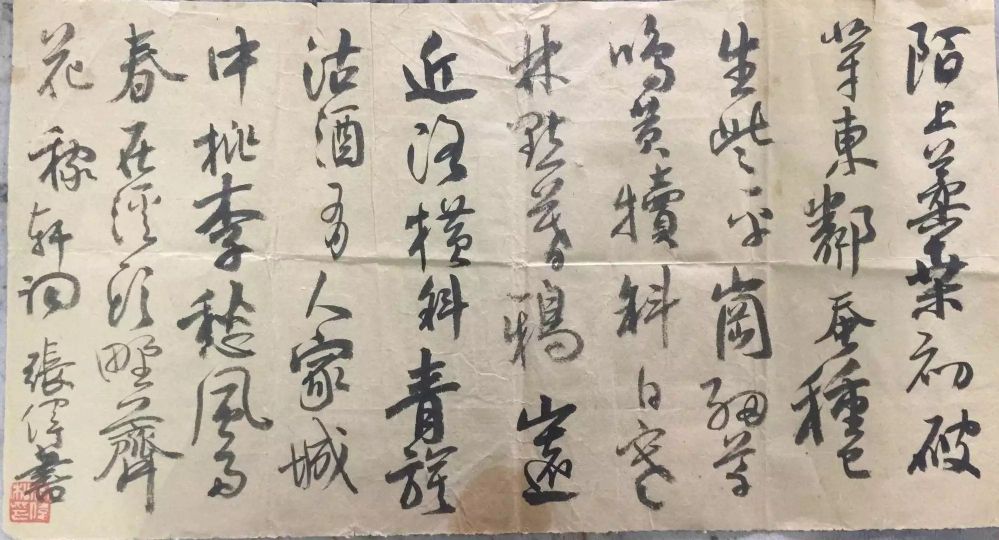 陌上柔桑初破
芽東鄰蚕種已
生些平崗細草
鳴黃犢斜日寒
林點暮鴉山遠
近路橫斜青旗
沽酒有人家城
中桃李愁風雨
春在溪頭野薺
花稼軒詞張書